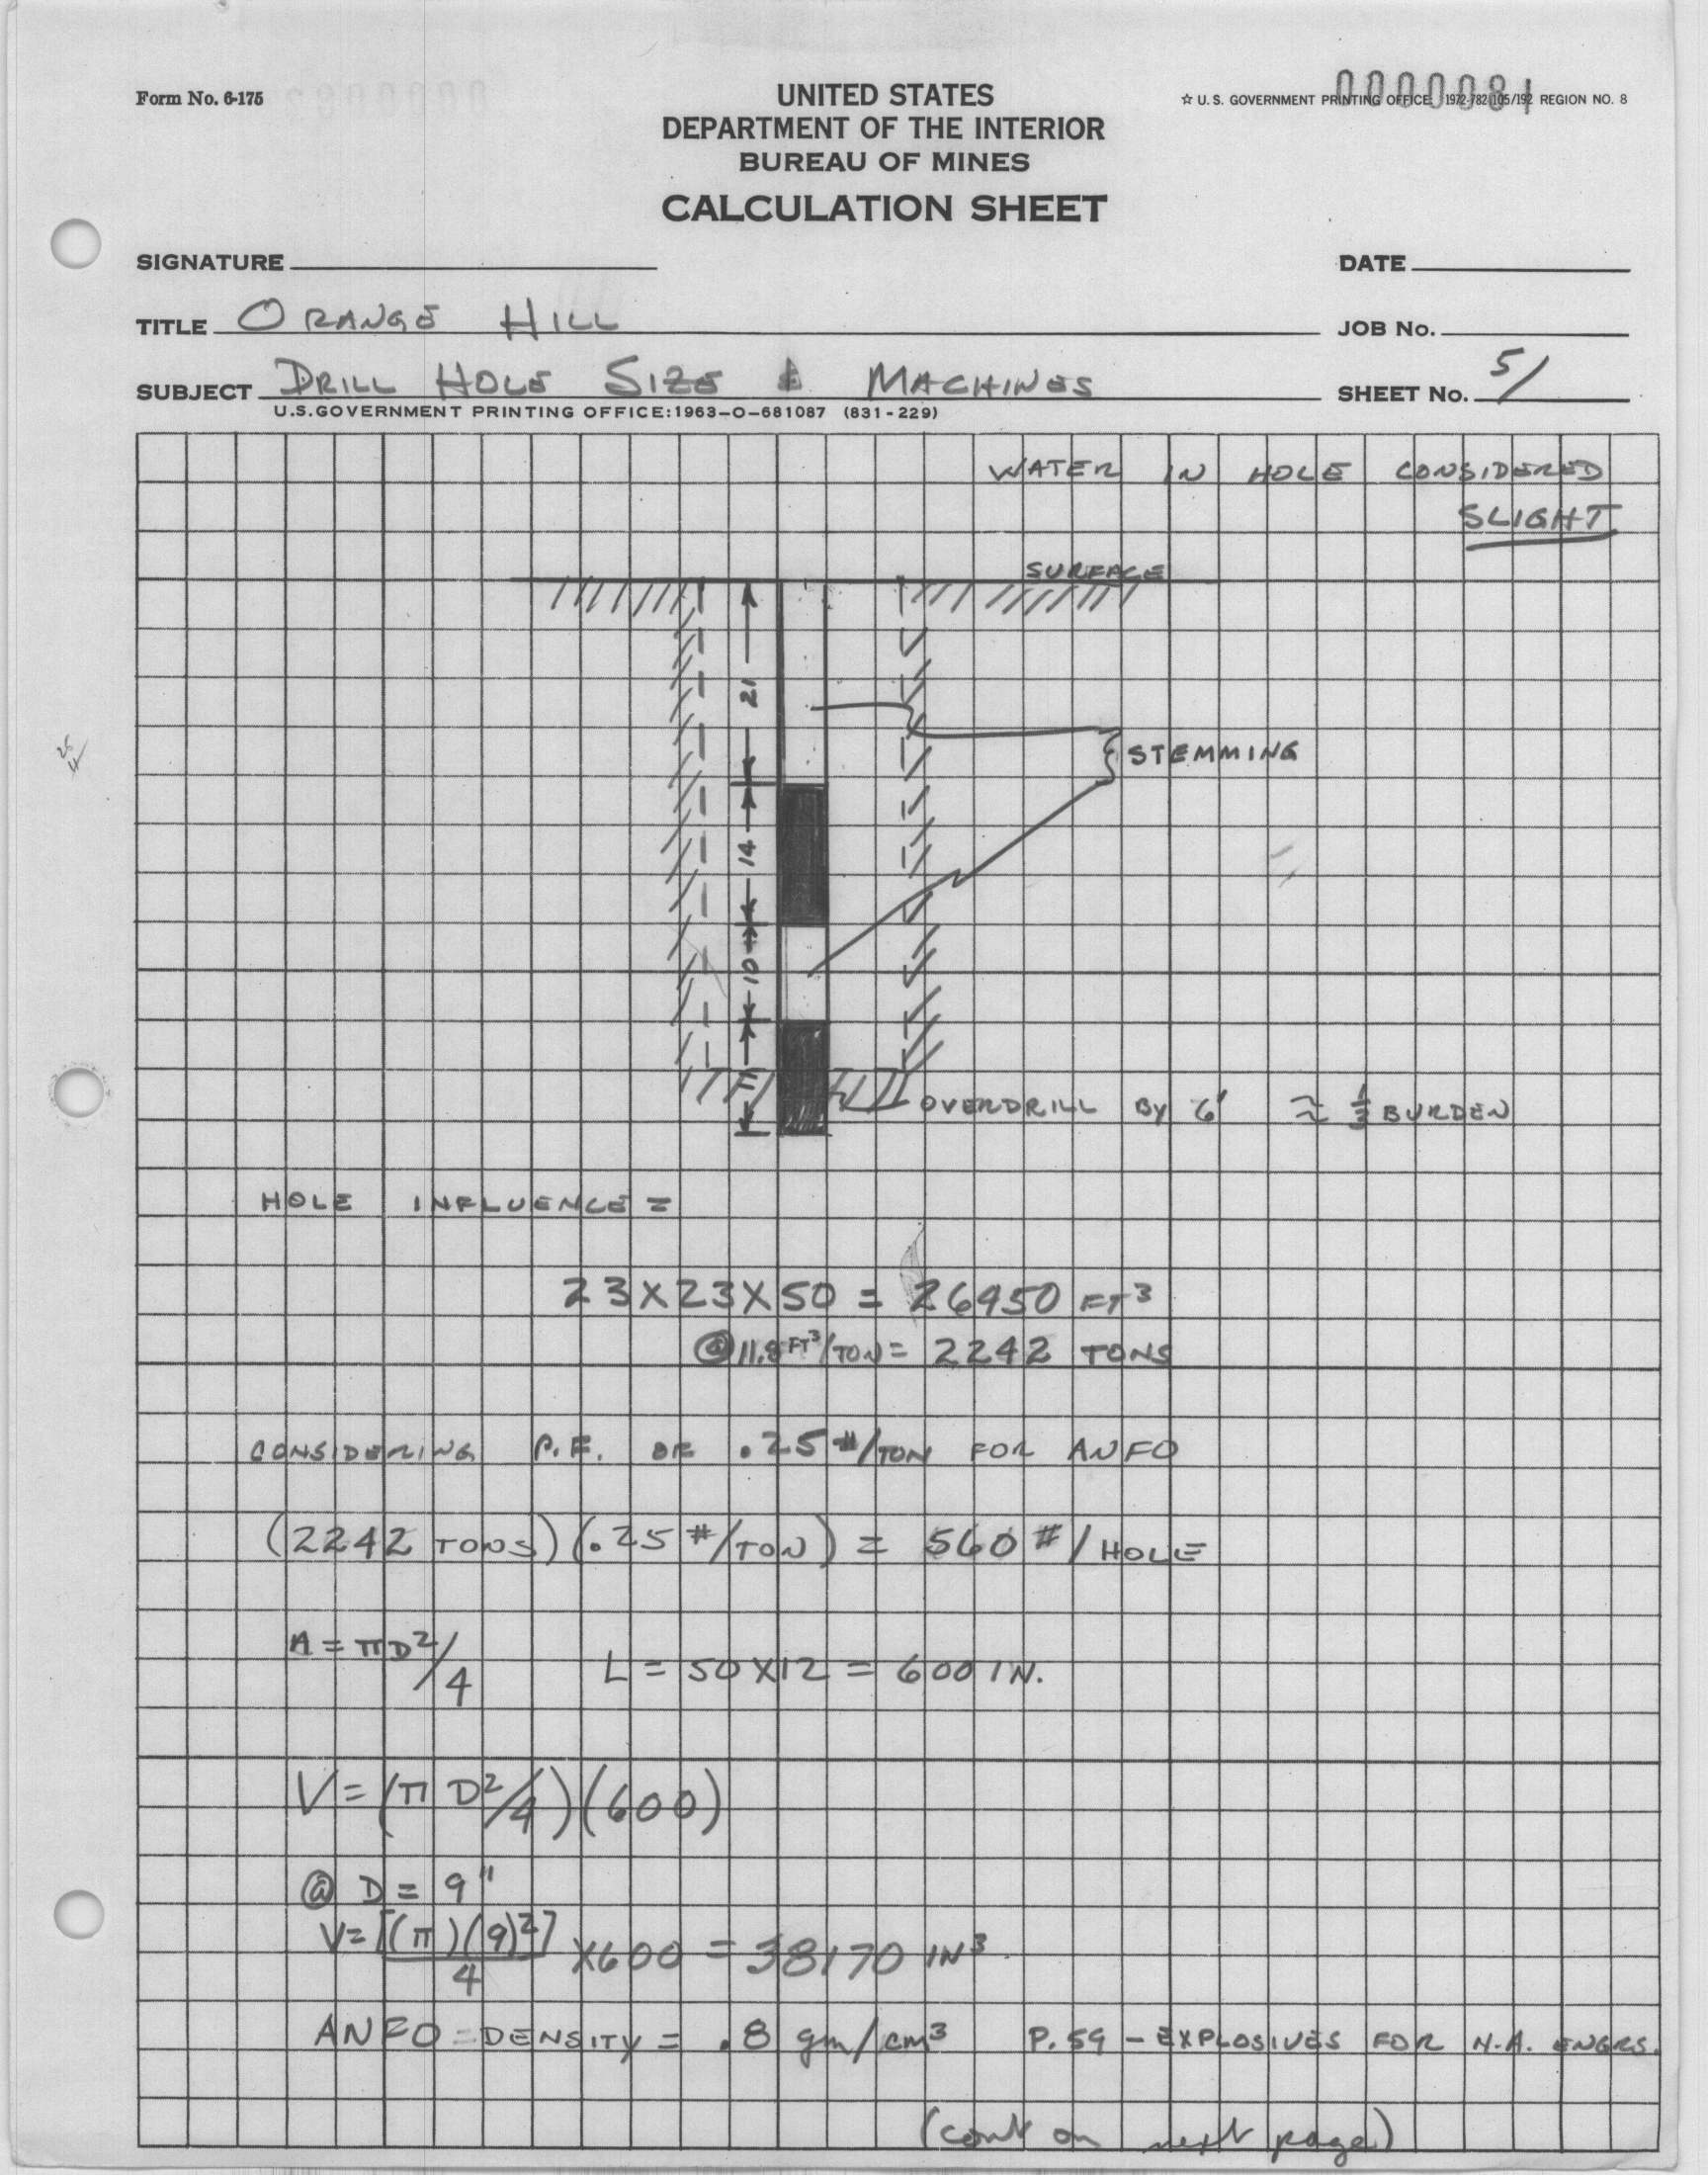 Form No. 6-175
UNITED STATES
DEPARTMENT OF THE INTERIOR
BUREAU OF MINES
CALCULATION SHEET
0000081
☆ U. S. GOVERNMENT PRINTING OFFICE 1972-782-105/192 REGION NO. 8
SIGNATURE
DATE
TITLE ORANGE HILL
JOB No.
SUBJECT DRILL HOLE SIZE & MACHINES
SHEET No. 51
U.S.GOVERNMENT PRINTING OFFICE:1963-O-681087 (831-229)
WATER IN HOLE CONSIDERED
SLIGHT
SURFACE
21
STEMMING
14
10
11
OVERDRILL BY 6' ≈ 1/3 BURDEN
HOLE INFLUENCE =
23X23X50 = 26450 FT³
@ 11.8 FT³/TON = 2242 TONS
CONSIDERING P.F. OF .25 #/TON FOR ANFO
(2242 TONS)(.25 #/TON) = 560 #/HOLE
A = πD²/4 L = 50X12 = 600 IN.
V = (π D²/4)(600)
@ D = 9"
V= [(π)(9)²]/4 X600 = 38170 IN³
ANFO = DENSITY = .8 gm/cm³ P.59 - EXPLOSIVES FOR N.A. ENGRS.
(cont on next page)